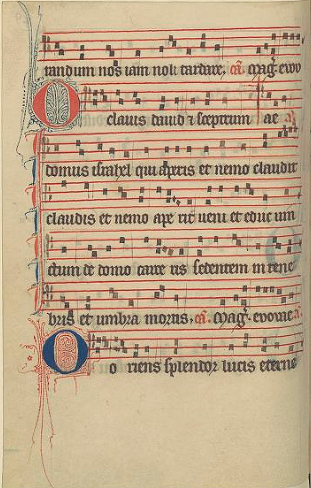 randum nos iam noli tardare. ca. Mag. evov
O clavis david & sceptrum ae a
domus israhel qui aperis et nemo claudit
claudis et nemo ape rit veni et educ vin
ctum de domo carce ris sedentem in tene
bris et umbra mortis. ca. Mag. evovae a
O o riens splendor lucis eterne